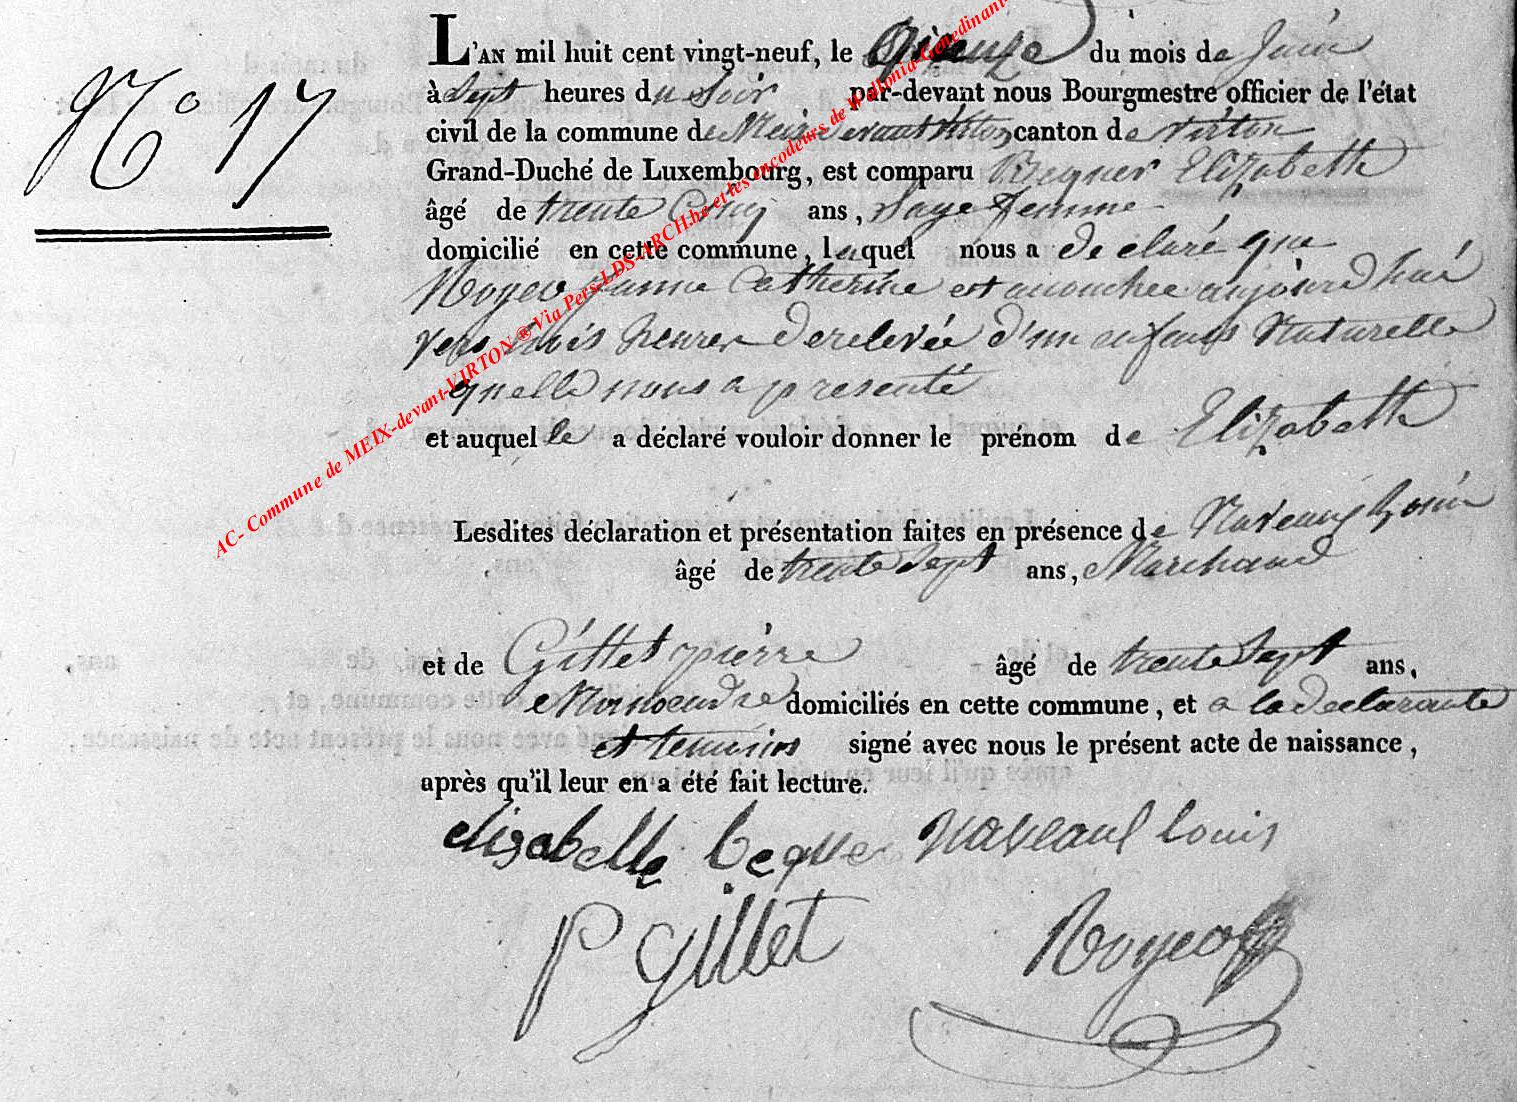 N° 17
L'AN mil huit cent vingt-neuf, le quinze du mois de Juin
à Sept heures du Soir par-devant nous Bourgmestre officier de l'état
civil de la commune de Meix devant Virton canton de virton
Grand-Duché de Luxembourg, est comparu Bequer Elizabeth
âgé de trente Cinq ans, Sage femme
domicilié en cette commune, laquel nous a declaré que
Noyer Jeanne Catherine est accouchée aujourd'hui
vers trois heures de relevée d'un enfant Naturelle
quelle nous a presenté
et auquel le a déclaré vouloir donner le prénom de Elizabeth
Lesdites déclaration et présentation faites en présence de Naveaux
âgé de trente Sept ans, Marchand
et de Gillet pierre âgé de trente Sept ans,
Manoeudre domiciliés en cette commune, et a la declarante
et temoins signé avec nous le présent acte de naissance,
après qu'il leur en a été fait lecture.
elizabette beque naveaux louis
P gillet Noyer
AC- Commune de MEIX-devant-VIRTON ® Via Pers-LDS-ARCH.be et les encodeurs de Wallonia-Genedinant